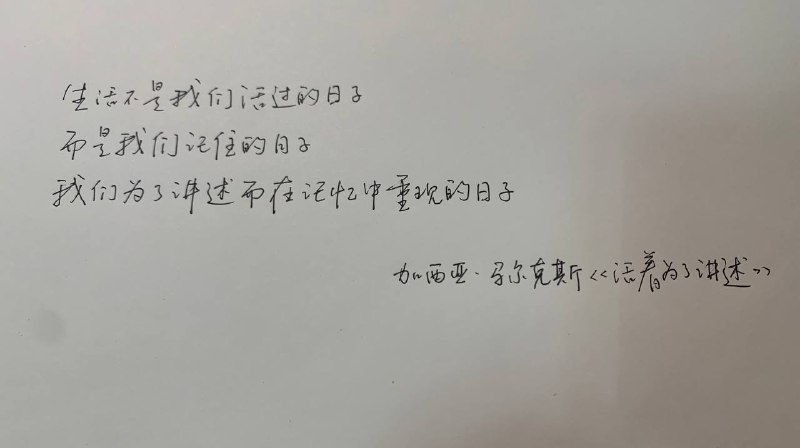 生活不是我们活过的日子
而是我们记住的日子
我们为了讲述而在记忆中重现的日子
加西亚·马尔克斯《活着为了讲述》